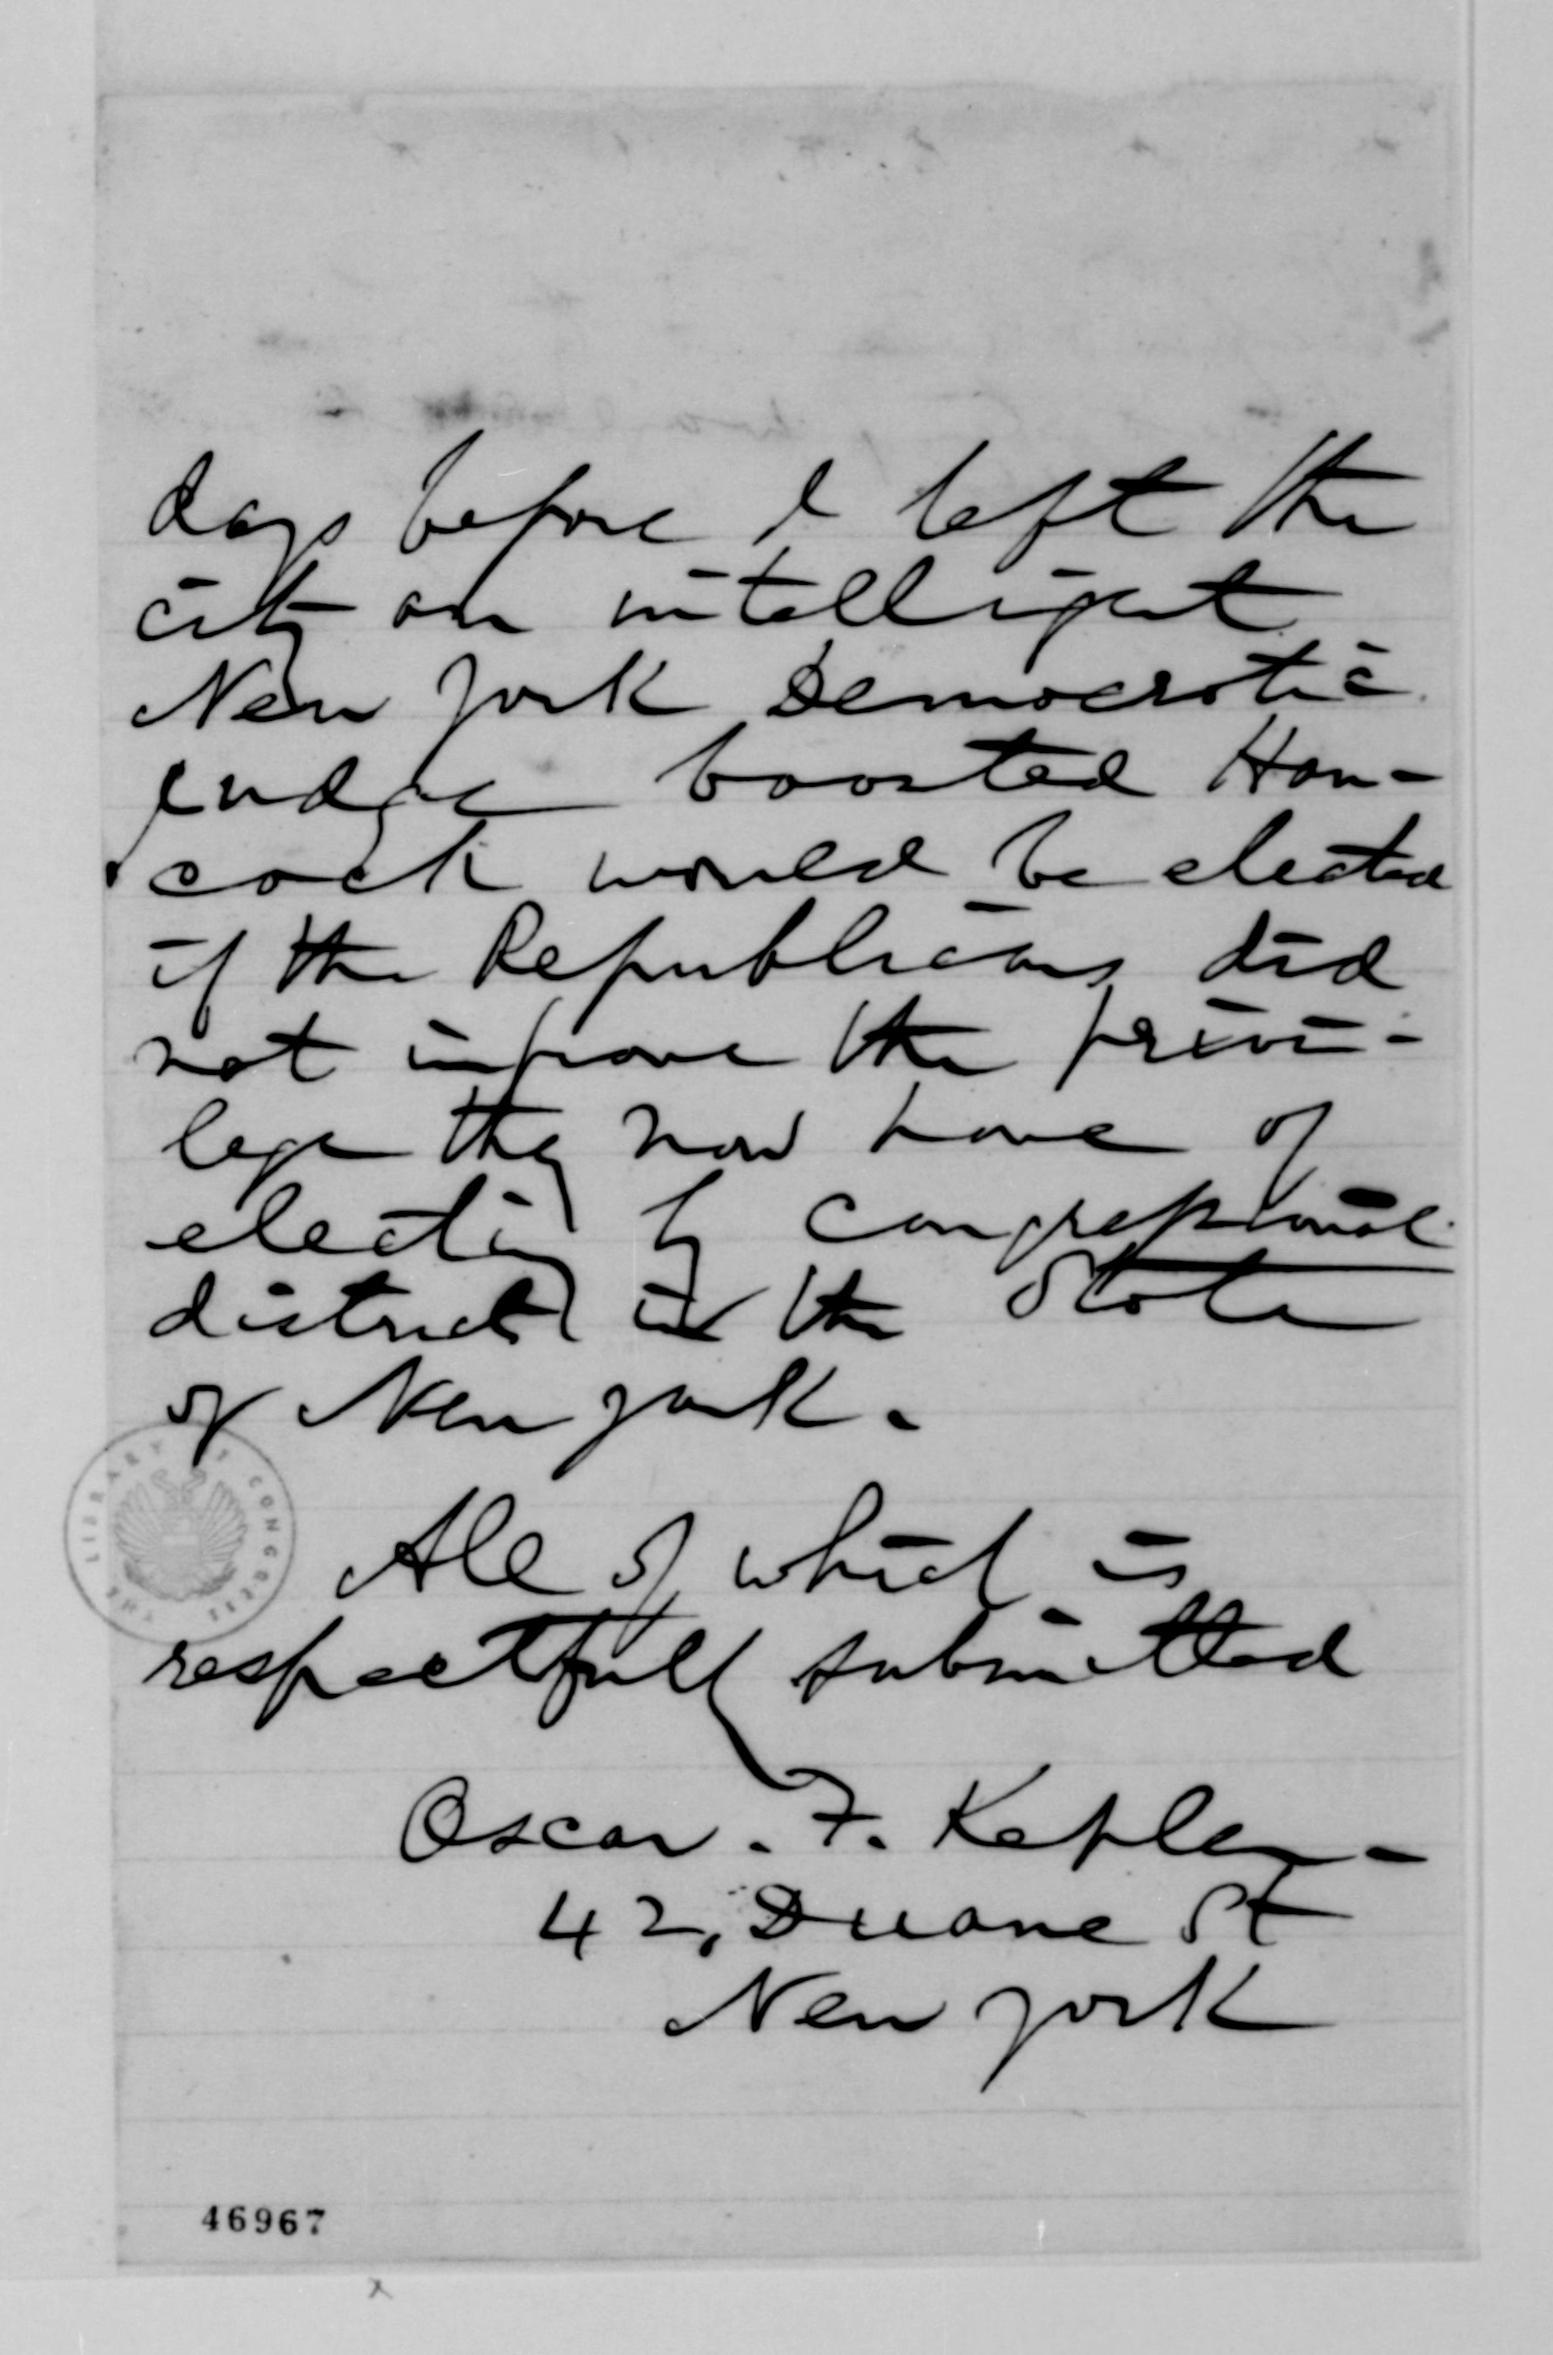 days before I left the
city an intelligent
New York Democratic
judge boasted Han-
cock would be elected
if the Republicans did
not improve the privi-
lege they now have of
electing by congressional
districts in the State
of New York.
All of which is
respectfully submitted
Oscar. F. Kepler-
42, Duane St
New York
THE LIBRARY OF CONGRESS
46967